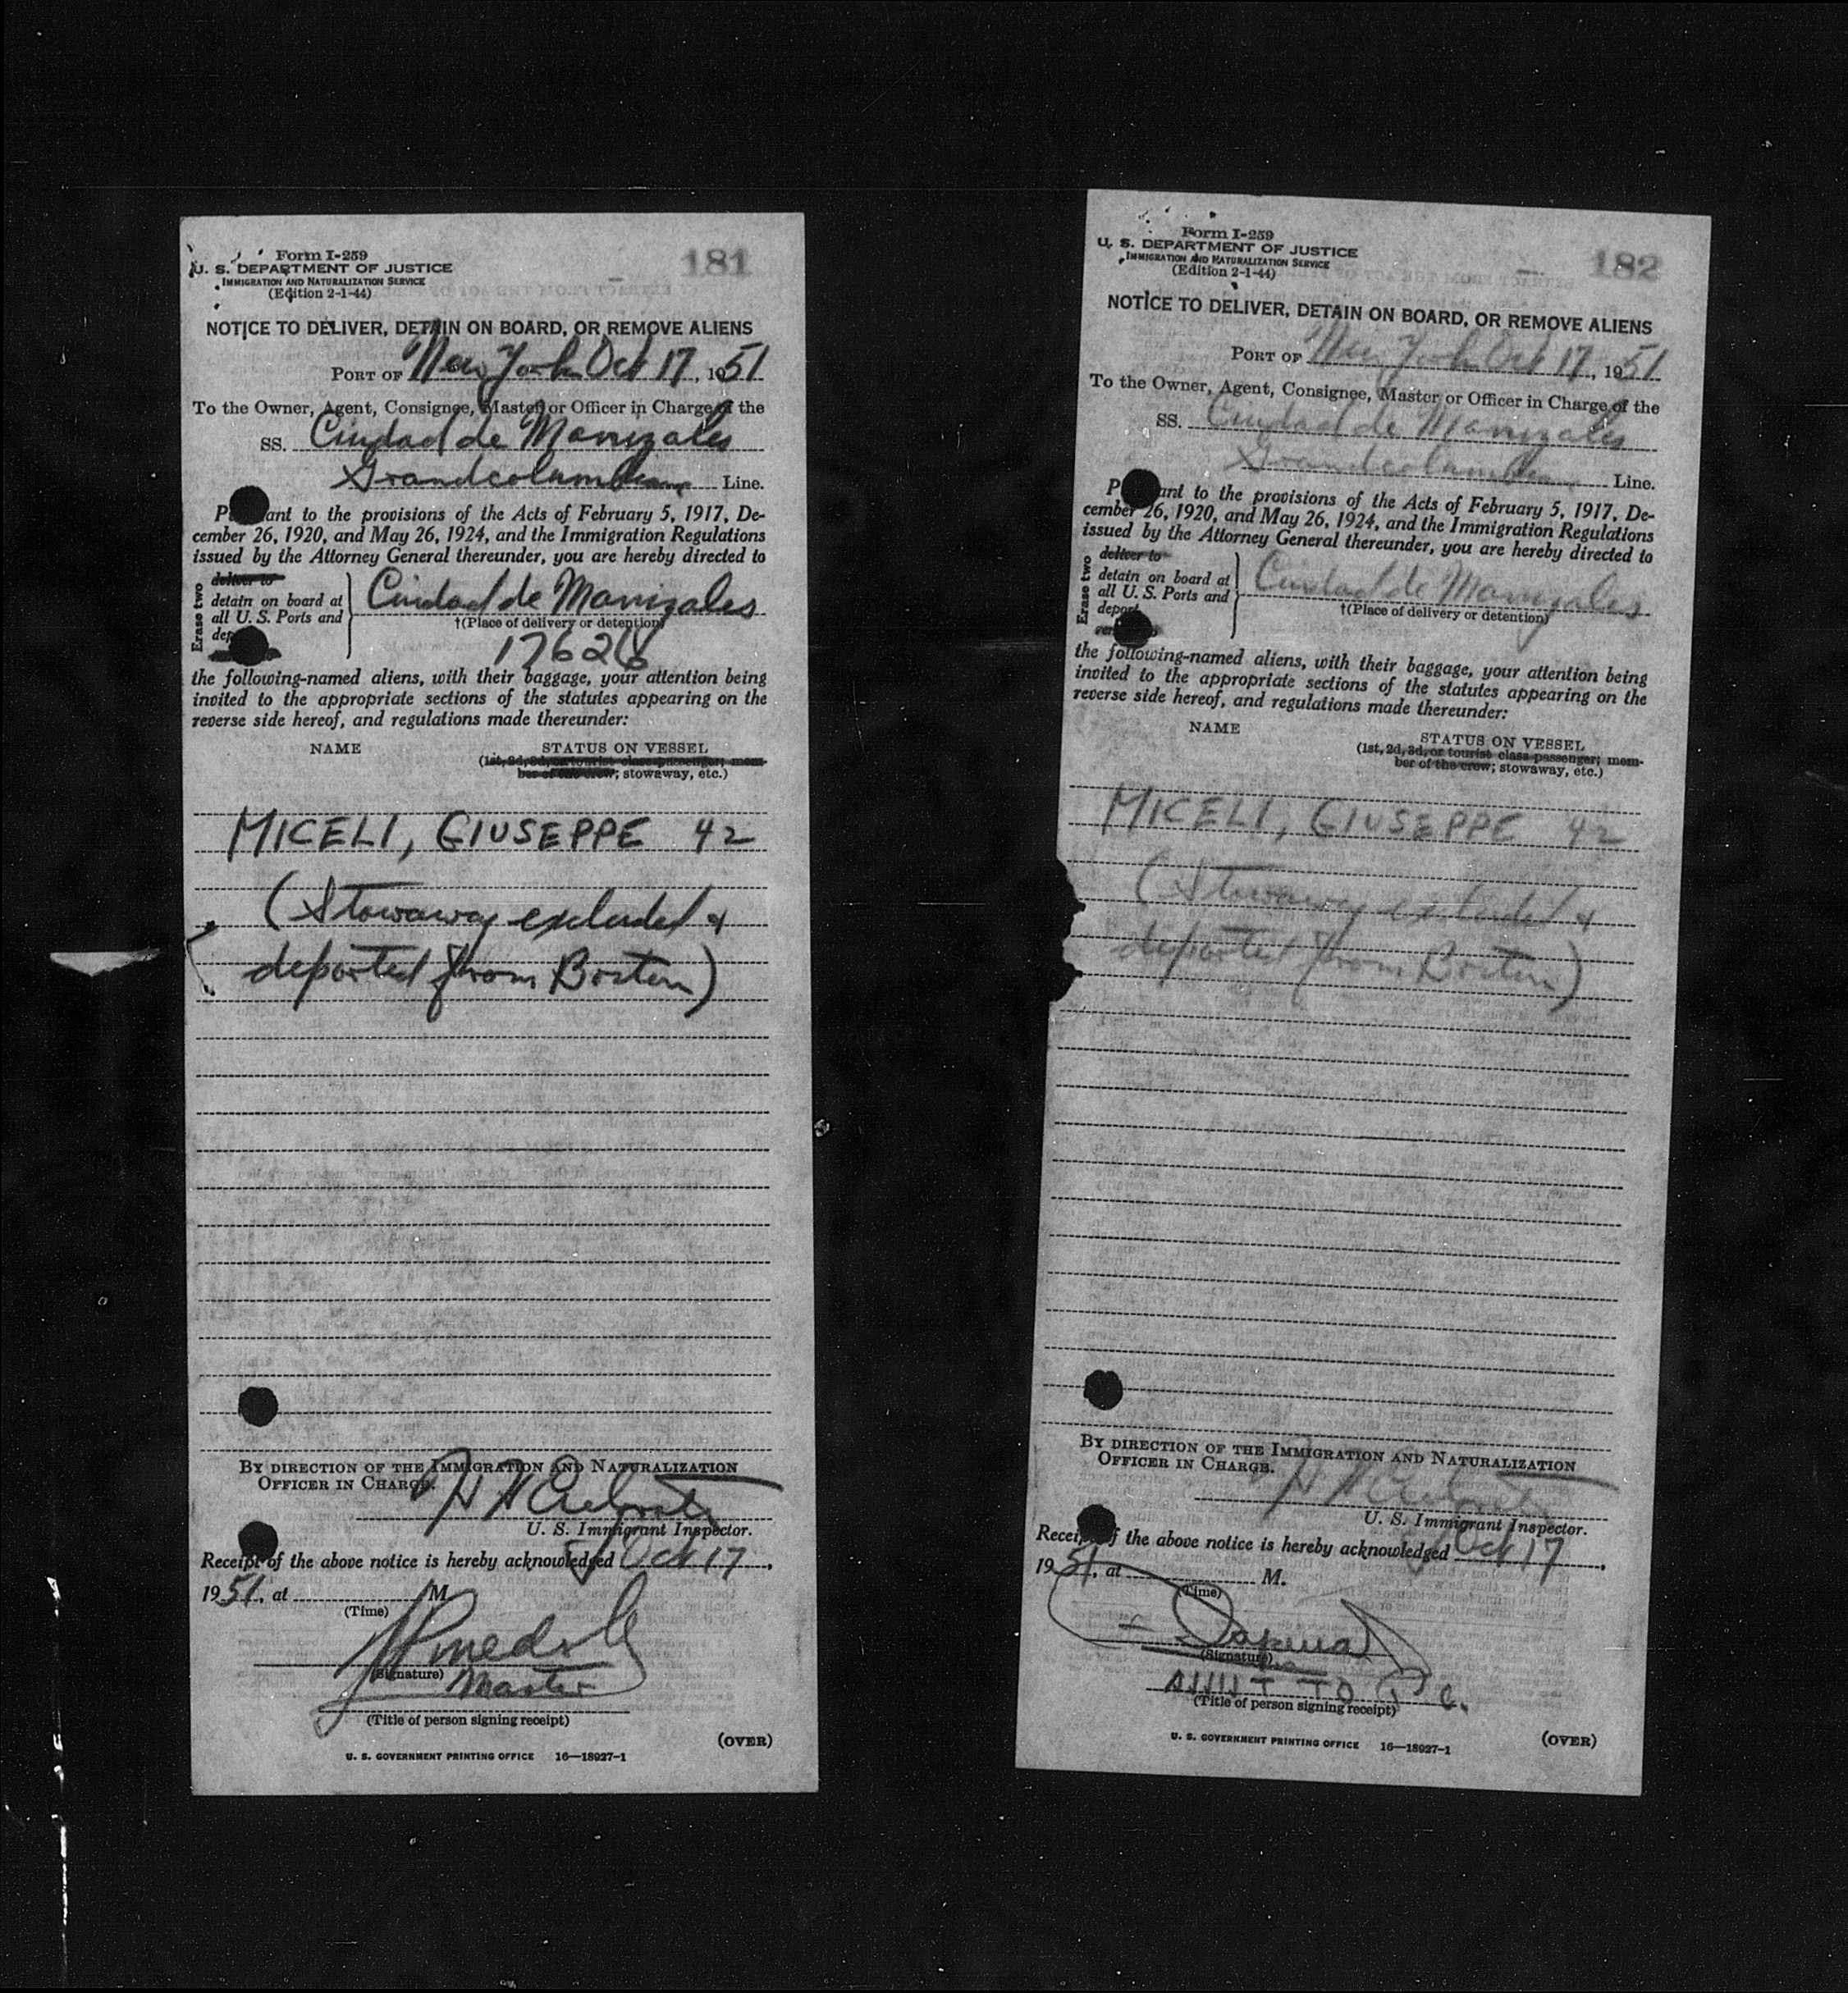 Form I-259
181
U. S. DEPARTMENT OF JUSTICE
IMMIGRATION AND NATURALIZATION SERVICE
(Edition 2-1-44)
NOTICE TO DELIVER, DETAIN ON BOARD, OR REMOVE ALIENS
PORT OF New York Oct 17, 1951
To the Owner, Agent, Consignee, Master or Officer in Charge of the
SS. Ciudad de Manizales
Line.
ant to the provisions of the Acts of February 5, 1917, De-
cember 26, 1920, and May 26, 1924, and the Immigration Regulations
issued by the Attorney General thereunder, you are hereby directed to
Erase two
deliver to
detain on board at
all U. S. Ports and
Ciudad de Manizales
†(Place of delivery or detention)
the following-named aliens, with their baggage, your attention being
invited to the appropriate sections of the statutes appearing on the
reverse side hereof, and regulations made thereunder:
NAME
STATUS ON VESSEL
(1st, 2d, 3d, or tourist class passenger; mem-
ber of the crew; stowaway, etc.)
MICELI, GIUSEPPE 42
(Stowaway excluded &
deported from Boston)
BY DIRECTION OF THE IMMIGRATION AND NATURALIZATION
OFFICER IN CHARGE.
U. S. Immigrant Inspector.
Receipt of the above notice is hereby acknowledged Oct 17,
1951, at M.
(Time)
(Signature)
Master
(Title of person signing receipt)
(OVER)
U. S. GOVERNMENT PRINTING OFFICE 16—18927-1
Form I-259
182
U. S. DEPARTMENT OF JUSTICE
IMMIGRATION AND NATURALIZATION SERVICE
(Edition 2-1-44)
NOTICE TO DELIVER, DETAIN ON BOARD, OR REMOVE ALIENS
PORT OF New York Oct 17, 1951
To the Owner, Agent, Consignee, Master or Officer in Charge of the
SS. Ciudad de Manizales
Line.
ant to the provisions of the Acts of February 5, 1917, De-
cember 26, 1920, and May 26, 1924, and the Immigration Regulations
issued by the Attorney General thereunder, you are hereby directed to
Erase two
deliver to
detain on board at
all U. S. Ports and
deport
Ciudad de Manizales
†(Place of delivery or detention)
the following-named aliens, with their baggage, your attention being
invited to the appropriate sections of the statutes appearing on the
reverse side hereof, and regulations made thereunder:
NAME
STATUS ON VESSEL
(1st, 2d, 3d, or tourist class passenger; mem-
ber of the crew; stowaway, etc.)
MICELI, GIUSEPPE 42
(Stowaway excluded &
deported from Boston)
BY DIRECTION OF THE IMMIGRATION AND NATURALIZATION
OFFICER IN CHARGE.
U. S. Immigrant Inspector.
Receipt of the above notice is hereby acknowledged Oct 17,
1951, at M.
(Time)
(Signature)
(Title of person signing receipt)
(OVER)
U. S. GOVERNMENT PRINTING OFFICE 16—18927-1